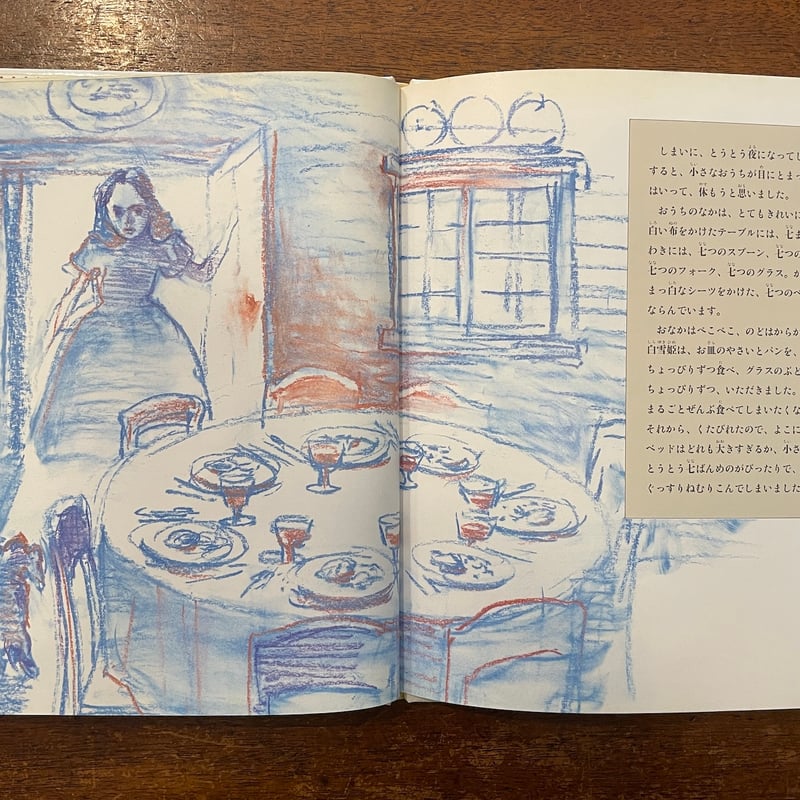 しまいに、とうとう夜になってし
すると、小さなおうちが目にとまっ
はいって、休もうと思いました。
おうちのなかは、とてもきれいに
白い布をかけたテーブルには、七ま
わきには、七つのスプーン、七つの
七つのフォーク、七つのグラス。か
まっ白なシーツをかけた、七つのベ
ならんでいます。
おなかはぺこぺこ、のどはからか
白雪姫は、お皿のやさいとパンを、
ちょっぴりずつ食べ、グラスのぶど
ちょっぴりずつ、いただきました。
まるごとぜんぶ食べてしまいたくな
それから、くたびれたので、よこに
ベッドはどれも大きすぎるか、小さ
とうとう七ばんめのがぴったりで、
ぐっすりねむりこんでしまいました